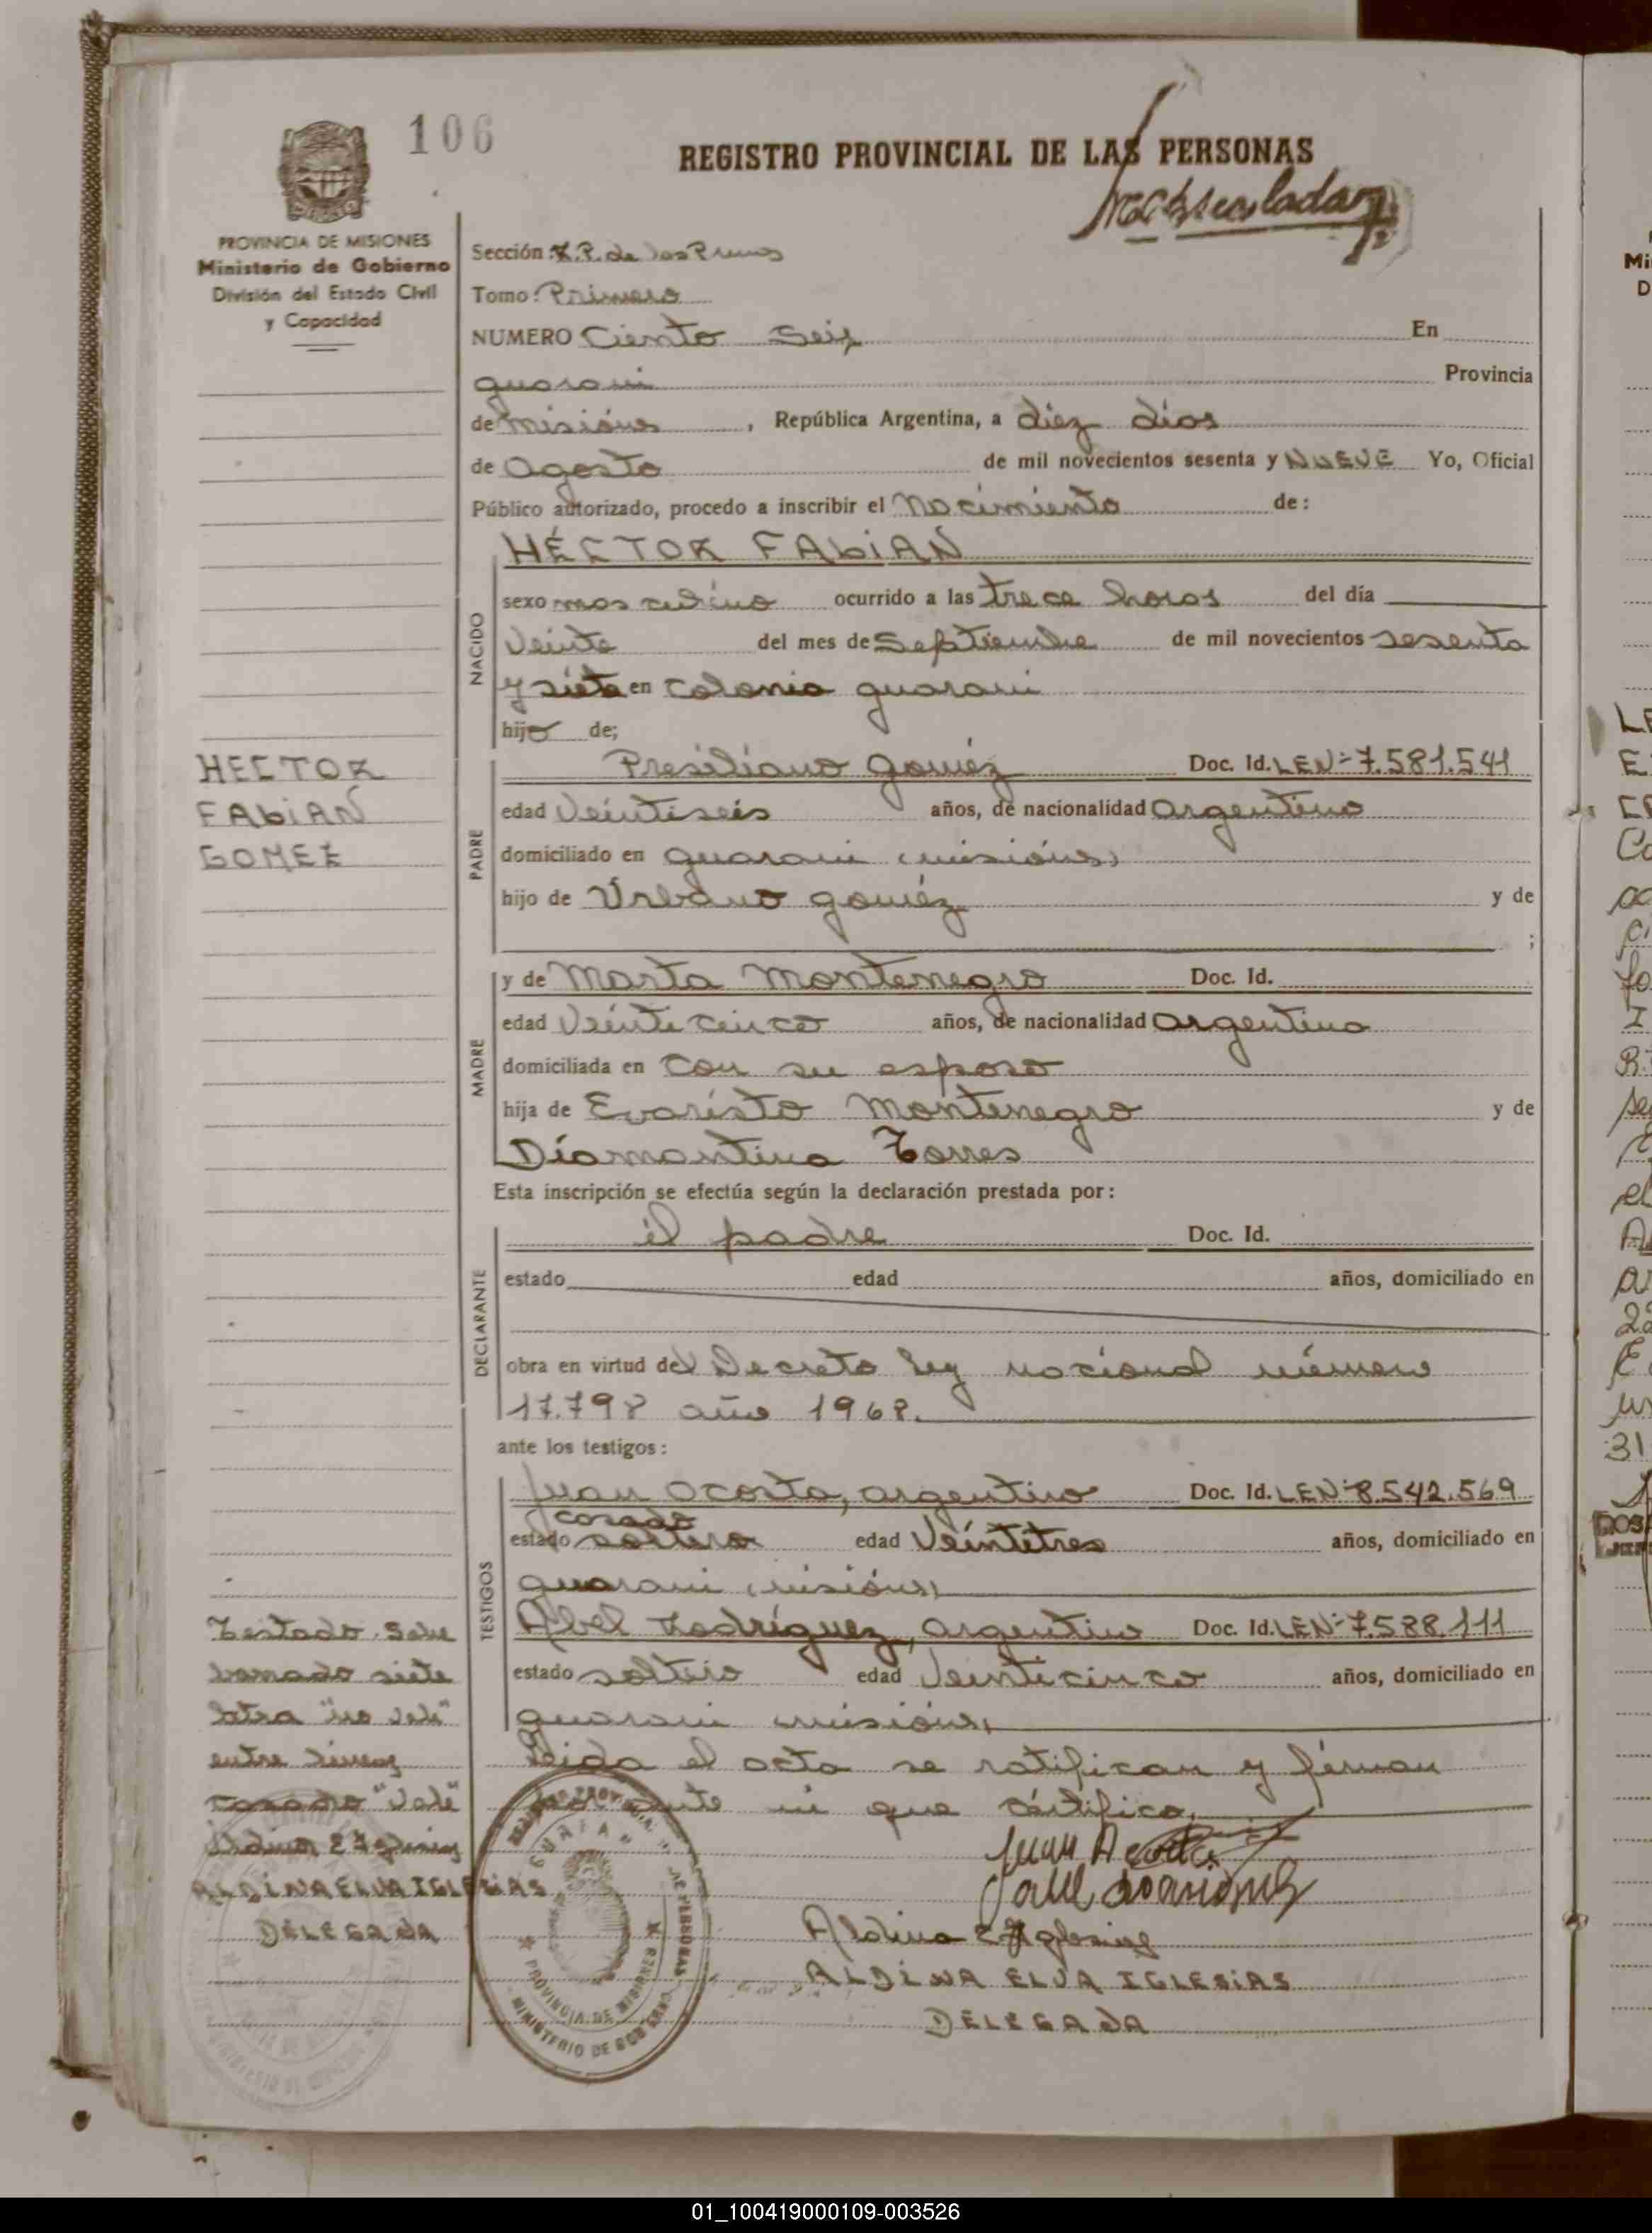 106
REGISTRO PROVINCIAL DE LAS PERSONAS
PROVINCIA DE MISIONES
Ministerio de Gobierno
División del Estado Civil
y Capacidad
Sección: R.P. de las
Tomo: Primero
NUMERO Ciento Seis En
guarani Provincia
de misiónes, República Argentina, a diez dias
de Agosto de mil novecientos sesenta y NUEVE Yo, Oficial
Público autorizado, procedo a inscribir el Nacimiento de:
HÉCTOR FAbiAN
NACIDO
sexo masculino ocurrido a las trece horas del día
Veinte del mes de Septiembre de mil novecientos sesenta
y siete en colonia guarani
hijo de;
HECTOR
FAbiAN
GOMEZ
PADRE
Presiliano gomez Doc. Id. LEN-7.581.541
edad Veintiseis años, de nacionalidad argentino
domiciliado en guarani (misiónes)
hijo de Urbano gomez y de
;
MADRE
y de Marta Montenegro Doc. Id.
edad Veinte cinco años, de nacionalidad argentina
domiciliada en con su esposo
hija de Evaristo Montenegro y de
Diamantina Torres
Esta inscripción se efectúa según la declaración prestada por:
DECLARANTE
el padre Doc. Id.
estado edad años, domiciliado en
obra en virtud del Decreto ley nacional número
17.798 año 1968.
ante los testigos:
TESTIGOS
Juan Acosta, argentino Doc. Id. LEN-8.542.569
casado
estado soltero edad Veintitres años, domiciliado en
guarani (misiónes)
Abel Rodríguez, argentino Doc. Id. LEN-7.588.111
estado soltero edad Veinticinco años, domiciliado en
guarani misiónes
Leida el acta se ratifican y firman
por ante mi que certifico.
Testado Sobre
borrado siete
letra "no vale"
entre lineas
casado "vale"
Aldina E Iglesias
ALDINA ELVA IGLESIAS
DELEGADA
Juan Acosta
Aldina E Iglesias
ALDINA ELVA IGLESIAS
DELEGADA
PROVINCIA DE MISIONES
MINISTERIO DE GOBIERNO
01_100419000109-003526